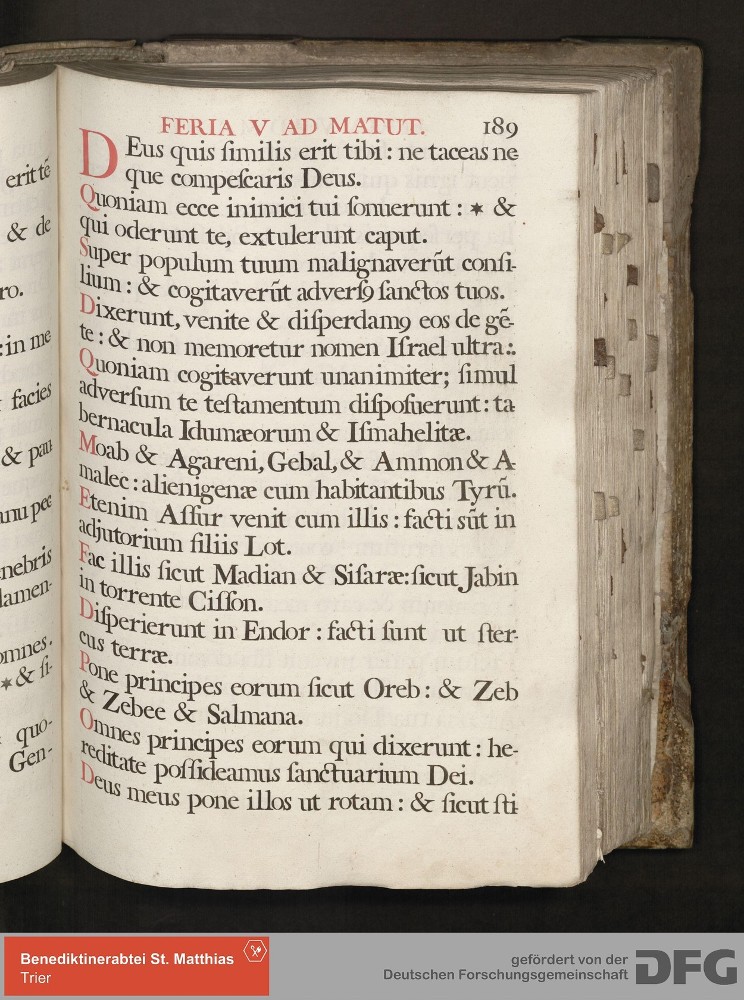 erit tẽ
& de
ro.
: in me
facies
& pau
anu pec
nebris
lamen-
omnes.
✶ & ſi-
quo-
Gen-
FERIA V AD MATUT. 189
DEus quis ſimilis erit tibi : ne taceas ne
que compeſcaris Deus.
Quoniam ecce inimici tui ſonuerunt : ✶ &
qui oderunt te, extulerunt caput.
Super populum tuum malignaverũt conſi-
lium : & cogitaverũt adverſꝯ ſanctos tuos.
Dixerunt, venite & diſperdamꝯ eos de gẽ-
te : & non memoretur nomen Iſrael ultra:.
Quoniam cogitaverunt unanimiter; ſimul
adverſum te teſtamentum diſpoſuerunt : ta
bernacula Idumæorum & Iſmahelitæ.
Moab & Agareni, Gebal, & Ammon & A-
malec : alienigenæ cum habitantibus Tyrũ.
Etenim Aſſur venit cum illis : facti sũt in
adjutorium filiis Lot.
Fac illis ſicut Madian & Siſaræ: ſicut Jabin
in torrente Ciſſon.
Diſperierunt in Endor : facti ſunt ut ſter-
cus terræ.
Pone principes eorum ſicut Oreb : & Zeb
& Zebee & Salmana.
Omnes principes eorum qui dixerunt : he-
reditate poſſideamus ſanctuarium Dei.
Deus meus pone illos ut rotam : & ſicut ſti
Benediktinerabtei St. Matthias
Trier
gefördert von der
Deutschen Forschungsgemeinschaft
DFG